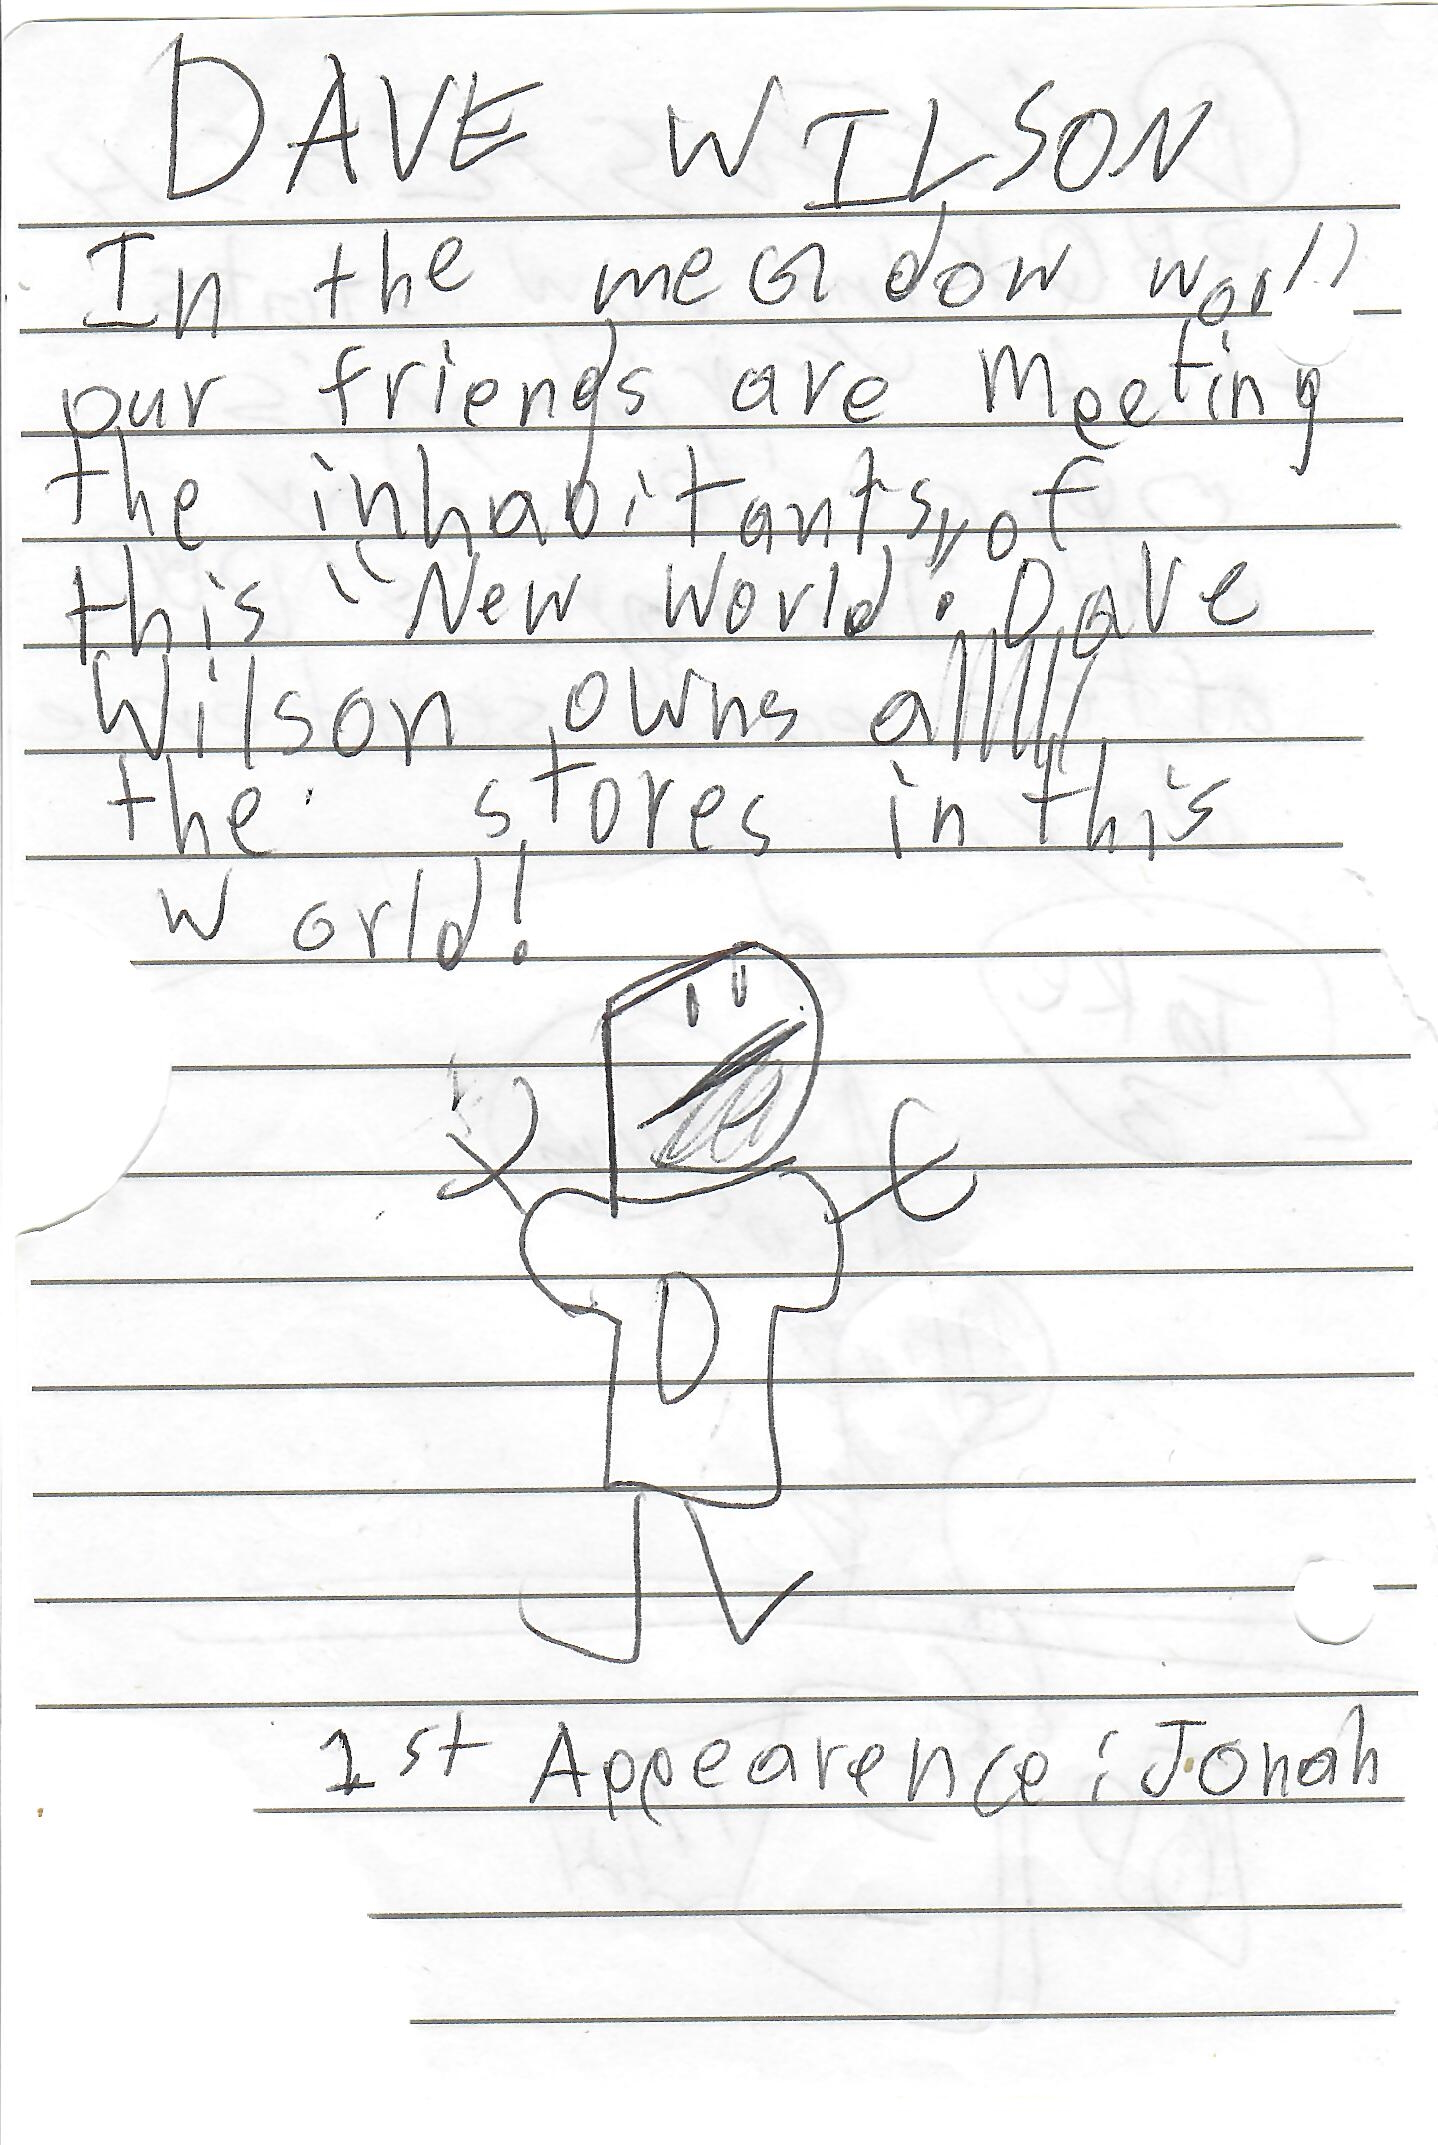 DAVE WILSON
In the meadow world
our friends are meeting
the inhabitants of
this "New World". Dave
Wilson owns allllll
the stores in this
world!
D
1st Appearence: Jonah